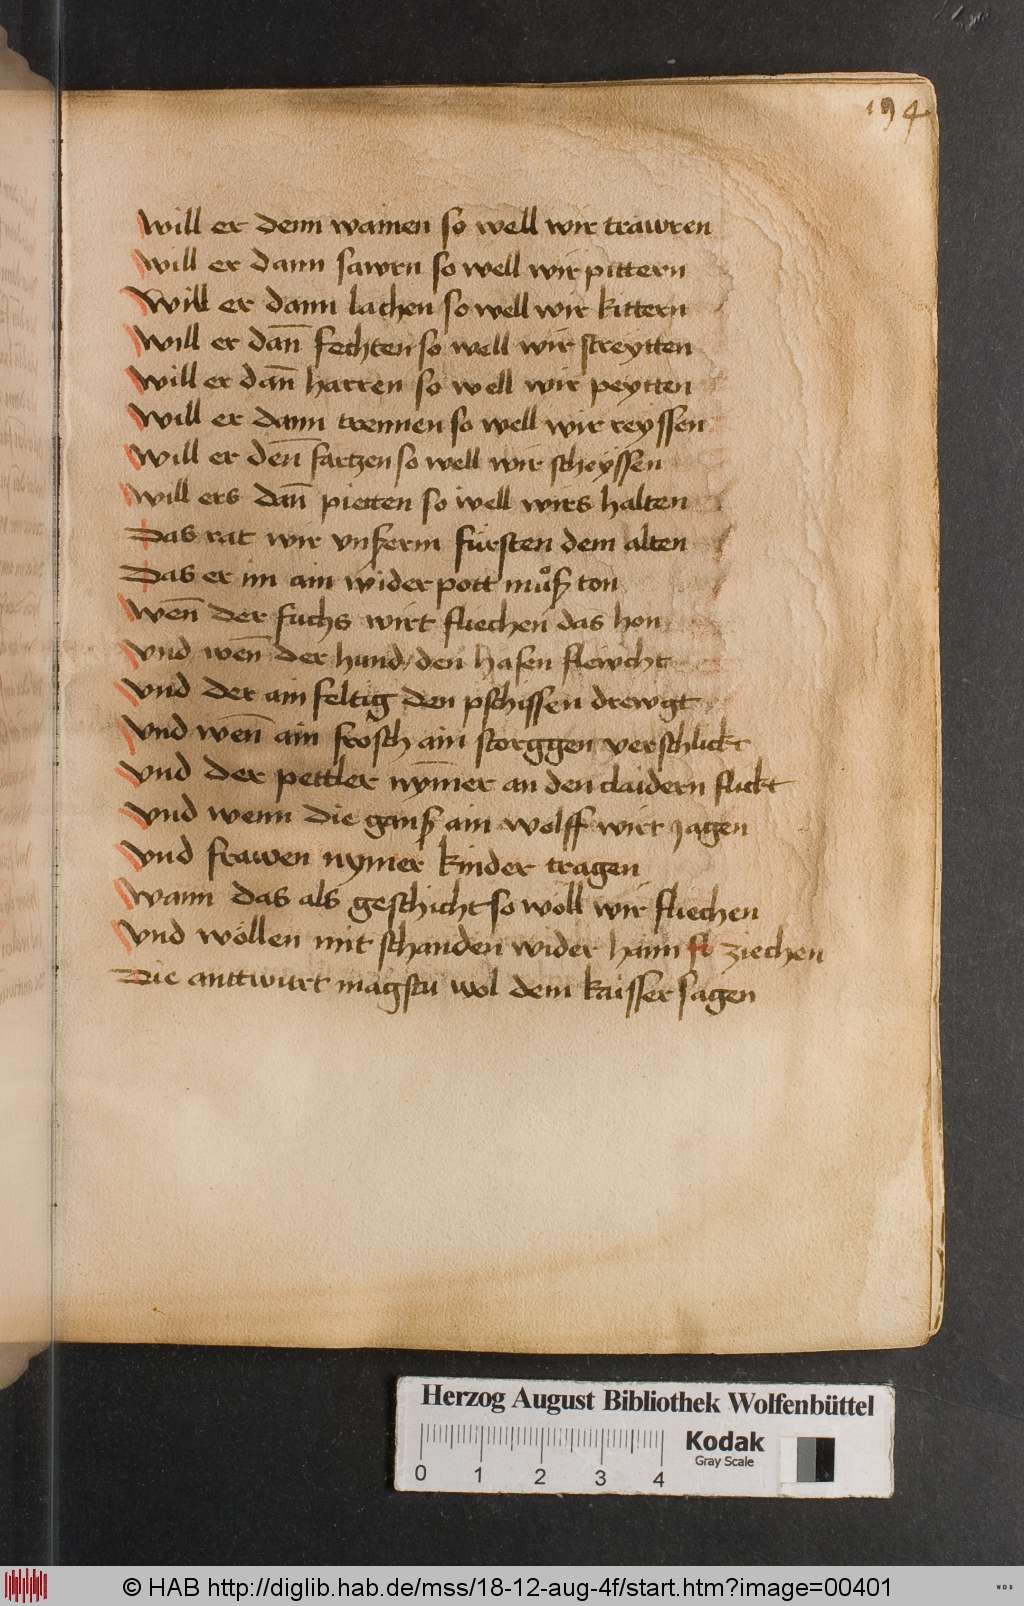 194
will er denn wainen so well wir trawren
will er dann sawrn so well wir pittern
Will er dann lachen so well wir kittern
will er dañ fechten so well wir streytten
will er dañ harren so well wir peytten
will er dann trennen so well wir reyssen
will er deñ fartzen so well wir scheyssen
will ers dañ pietten so well wirs halten
Das rat wir vnßerm fürsten dem alten
Das er im ain wider pott muͦß ton
weñ der fuchs wirt fliechen das hon
vnd weñ der hund den hasen flewcht
vnd der ain feltig den pschissen drewgt
vnd weñ ain frosch ain storggen verschlickt
vnd der pettler nym̄er an den claidern flickt
vnd wenn die ganß ain wolff wirt jagen
vnd frawen nymer kinder tragen
wann das als geschicht so woll wir fliechen
vnd wöllen mit schanden wider haim ziechen
Die anttwurt magstu wol dem kaisser sagen
Herzog August Bibliothek Wolfenbüttel
0 1 2 3 4
Kodak
Gray Scale
© HAB http://diglib.hab.de/mss/18-12-aug-4f/start.htm?image=00401